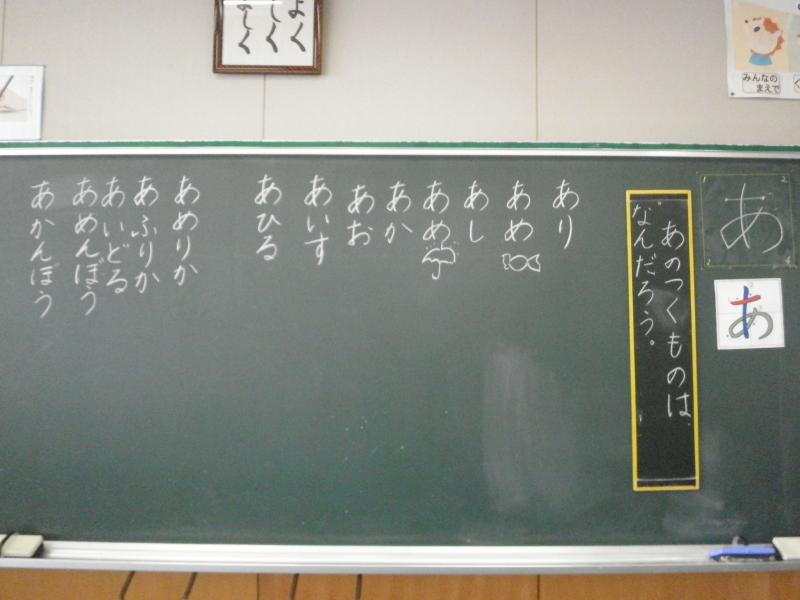 みんなの
まえで
あ
あ
あのつくものは、
なんだろう。
あり
あめ
あし
あめ
あか
あお
あいす
あひる
あめりか
あふりか
あいどる
あめんぼう
あかんぼう